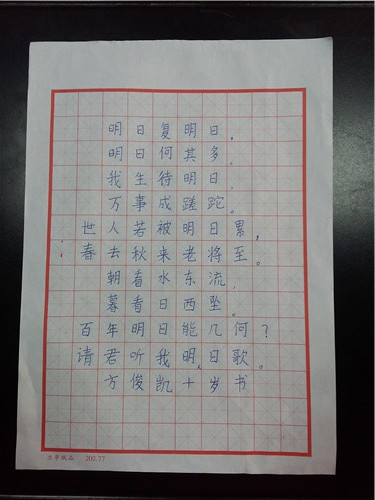 明日复明日，
明日何其多。
我生待明日，
万事成蹉跎。
世人若被明日累，
春去秋来老将至。
朝看水东流，
暮看日西坠。
百年明日能几何？
请君听我明日歌。
方俊凯十岁书
202.77